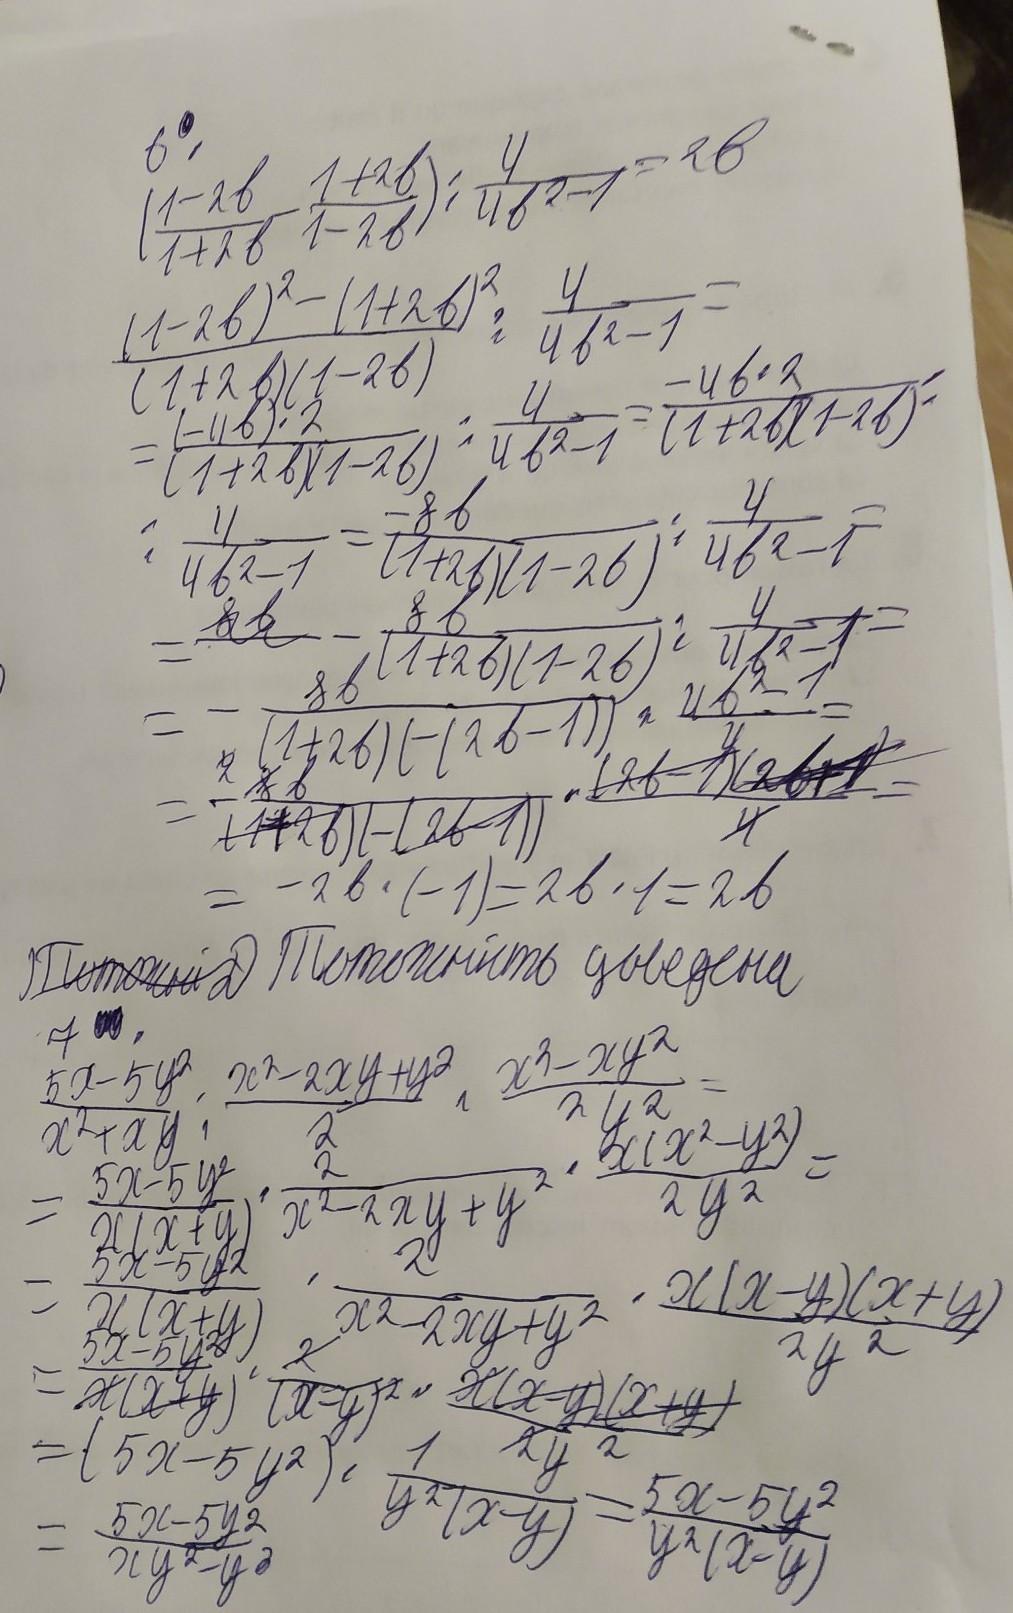 6.
(1-2b/1+2b - 1+2b/1-2b) : 4/4b²-1 = 2b
(1-2b)² - (1+2b)²/(1+2b)(1-2b) : 4/4b²-1 =
= (-4b)·2/(1+2b)(1-2b) : 4/4b²-1 = -4b·2/(1+2b)(1-2b) :
: 4/4b²-1 = -8b/(1+2b)(1-2b) : 4/4b²-1 =
= - 8b/(1+2b)(1-2b) : 4/4b²-1 =
= - 8b/(1+2b)(-(2b-1)) · 4b²-1/4 =
= - 8b/(1+2b)(-(2b-1)) · (2b-1)(2b+1)/4 =
= -2b·(-1) = 2b·1 = 2b
Тотожність доведена
7.
5x-5y²/x²+xy : x²-2xy+y²/2 · x³-xy²/2y² =
= 5x-5y²/x(x+y) · 2/x²-2xy+y² · x(x²-y²)/2y² =
= 5x-5y²/x(x+y) · 2/x²-2xy+y² · x(x-y)(x+y)/2y²
= 5x-5y²/x(x+y) · 2/(x-y)² · x(x-y)(x+y)/2y²
= (5x-5y²) · 1/y²(x-y) = 5x-5y²/y²(x-y)
= 5x-5y²/xy²-y³